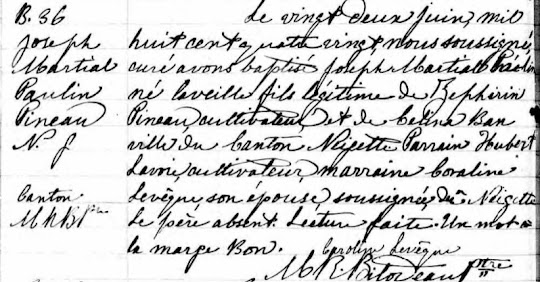 B. 36
Joseph
Martial
Paulin
Pineau
N. J
Canton
Le vingt deux juin, mil
huit cent quatre vingt nous soussigné,
curé avons baptisé Joseph Martial Paulin
né la veille fils légitime de Zephirin
Pineau, cultivateur, et de Celina Ban
ville du Canton Neigette Parrain Hubert
Lavoie, cultivateur, marraine Coraline
Levêque, son épouse, soussignée, du Neigette
Le père absent. Lecture faite. Un mot à
la marge Bon.
Caroline Levêque
Ptre